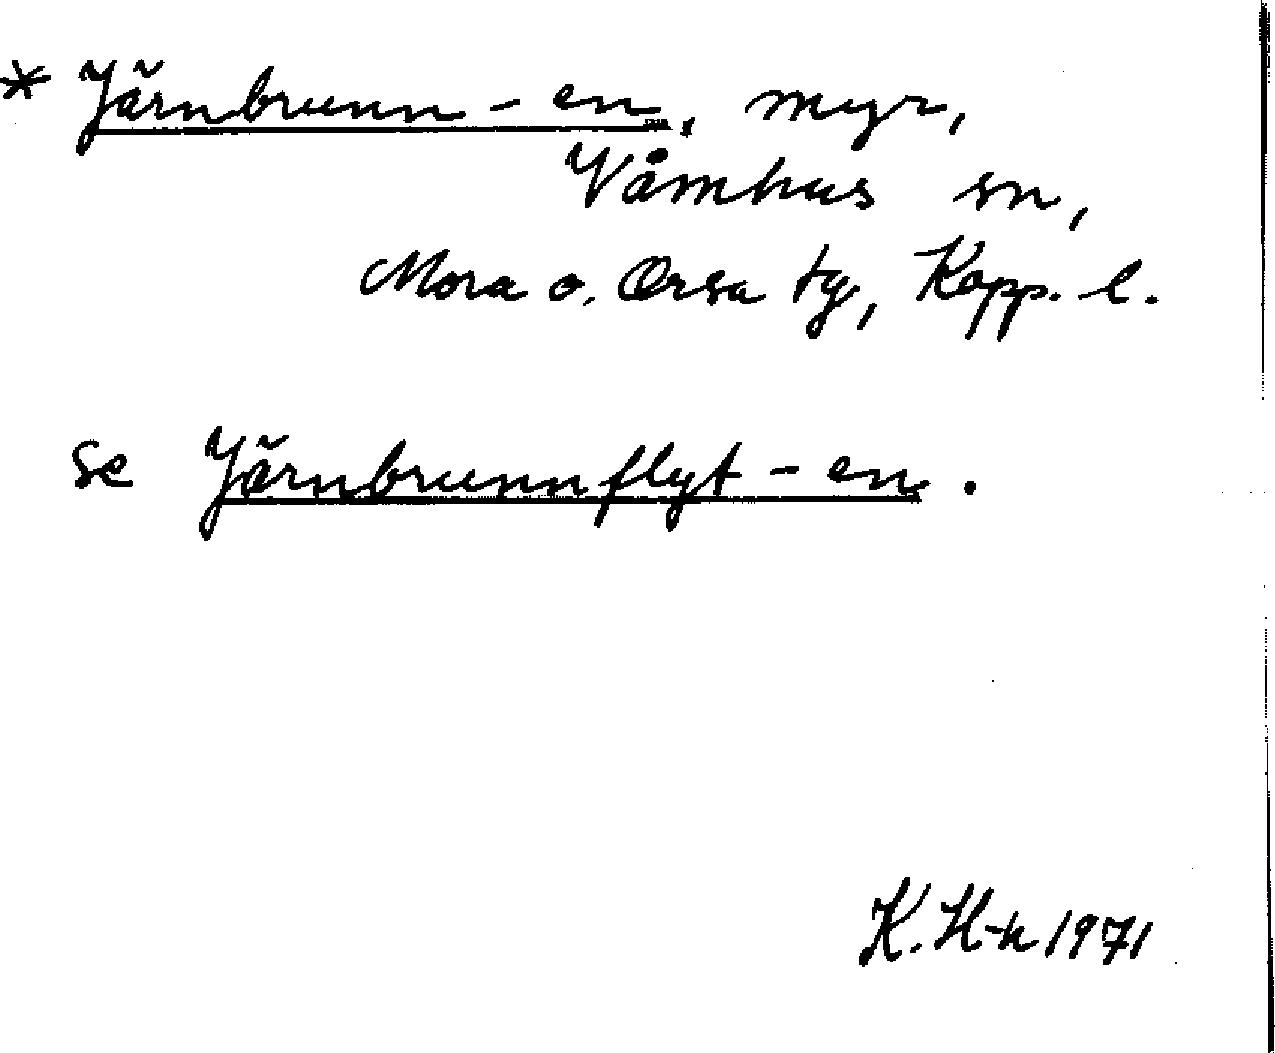 * Järnbrunn-en, myr,
Våmhus sn,
Mora o. Orsa tg, Kopp. l.
se Järnbrunnflyt-en.
K. H-n 1971